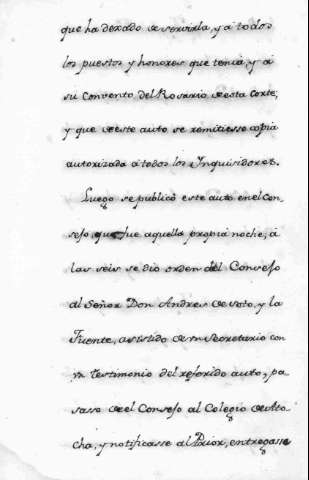 que ha dexado de servirla, y á todos
los puestos y honores que tenia, y á
su Convento del Rosario de esta Corte;
y que de este auto se remitiesse copia
autorizada á todos los Inquisidores.
Luego se publicó este auto en el Con-
sejo, que fue aquella propia noche, á
las seis se dio orden del Consejo
al Señor Don Andres de Soto, y la
Fuente, asistido de un Secretario con
un testimonio del referido auto, pa-
sasse de el Consejo al Colegio de Ato-
cha, y notificasse al Prior, entregasse